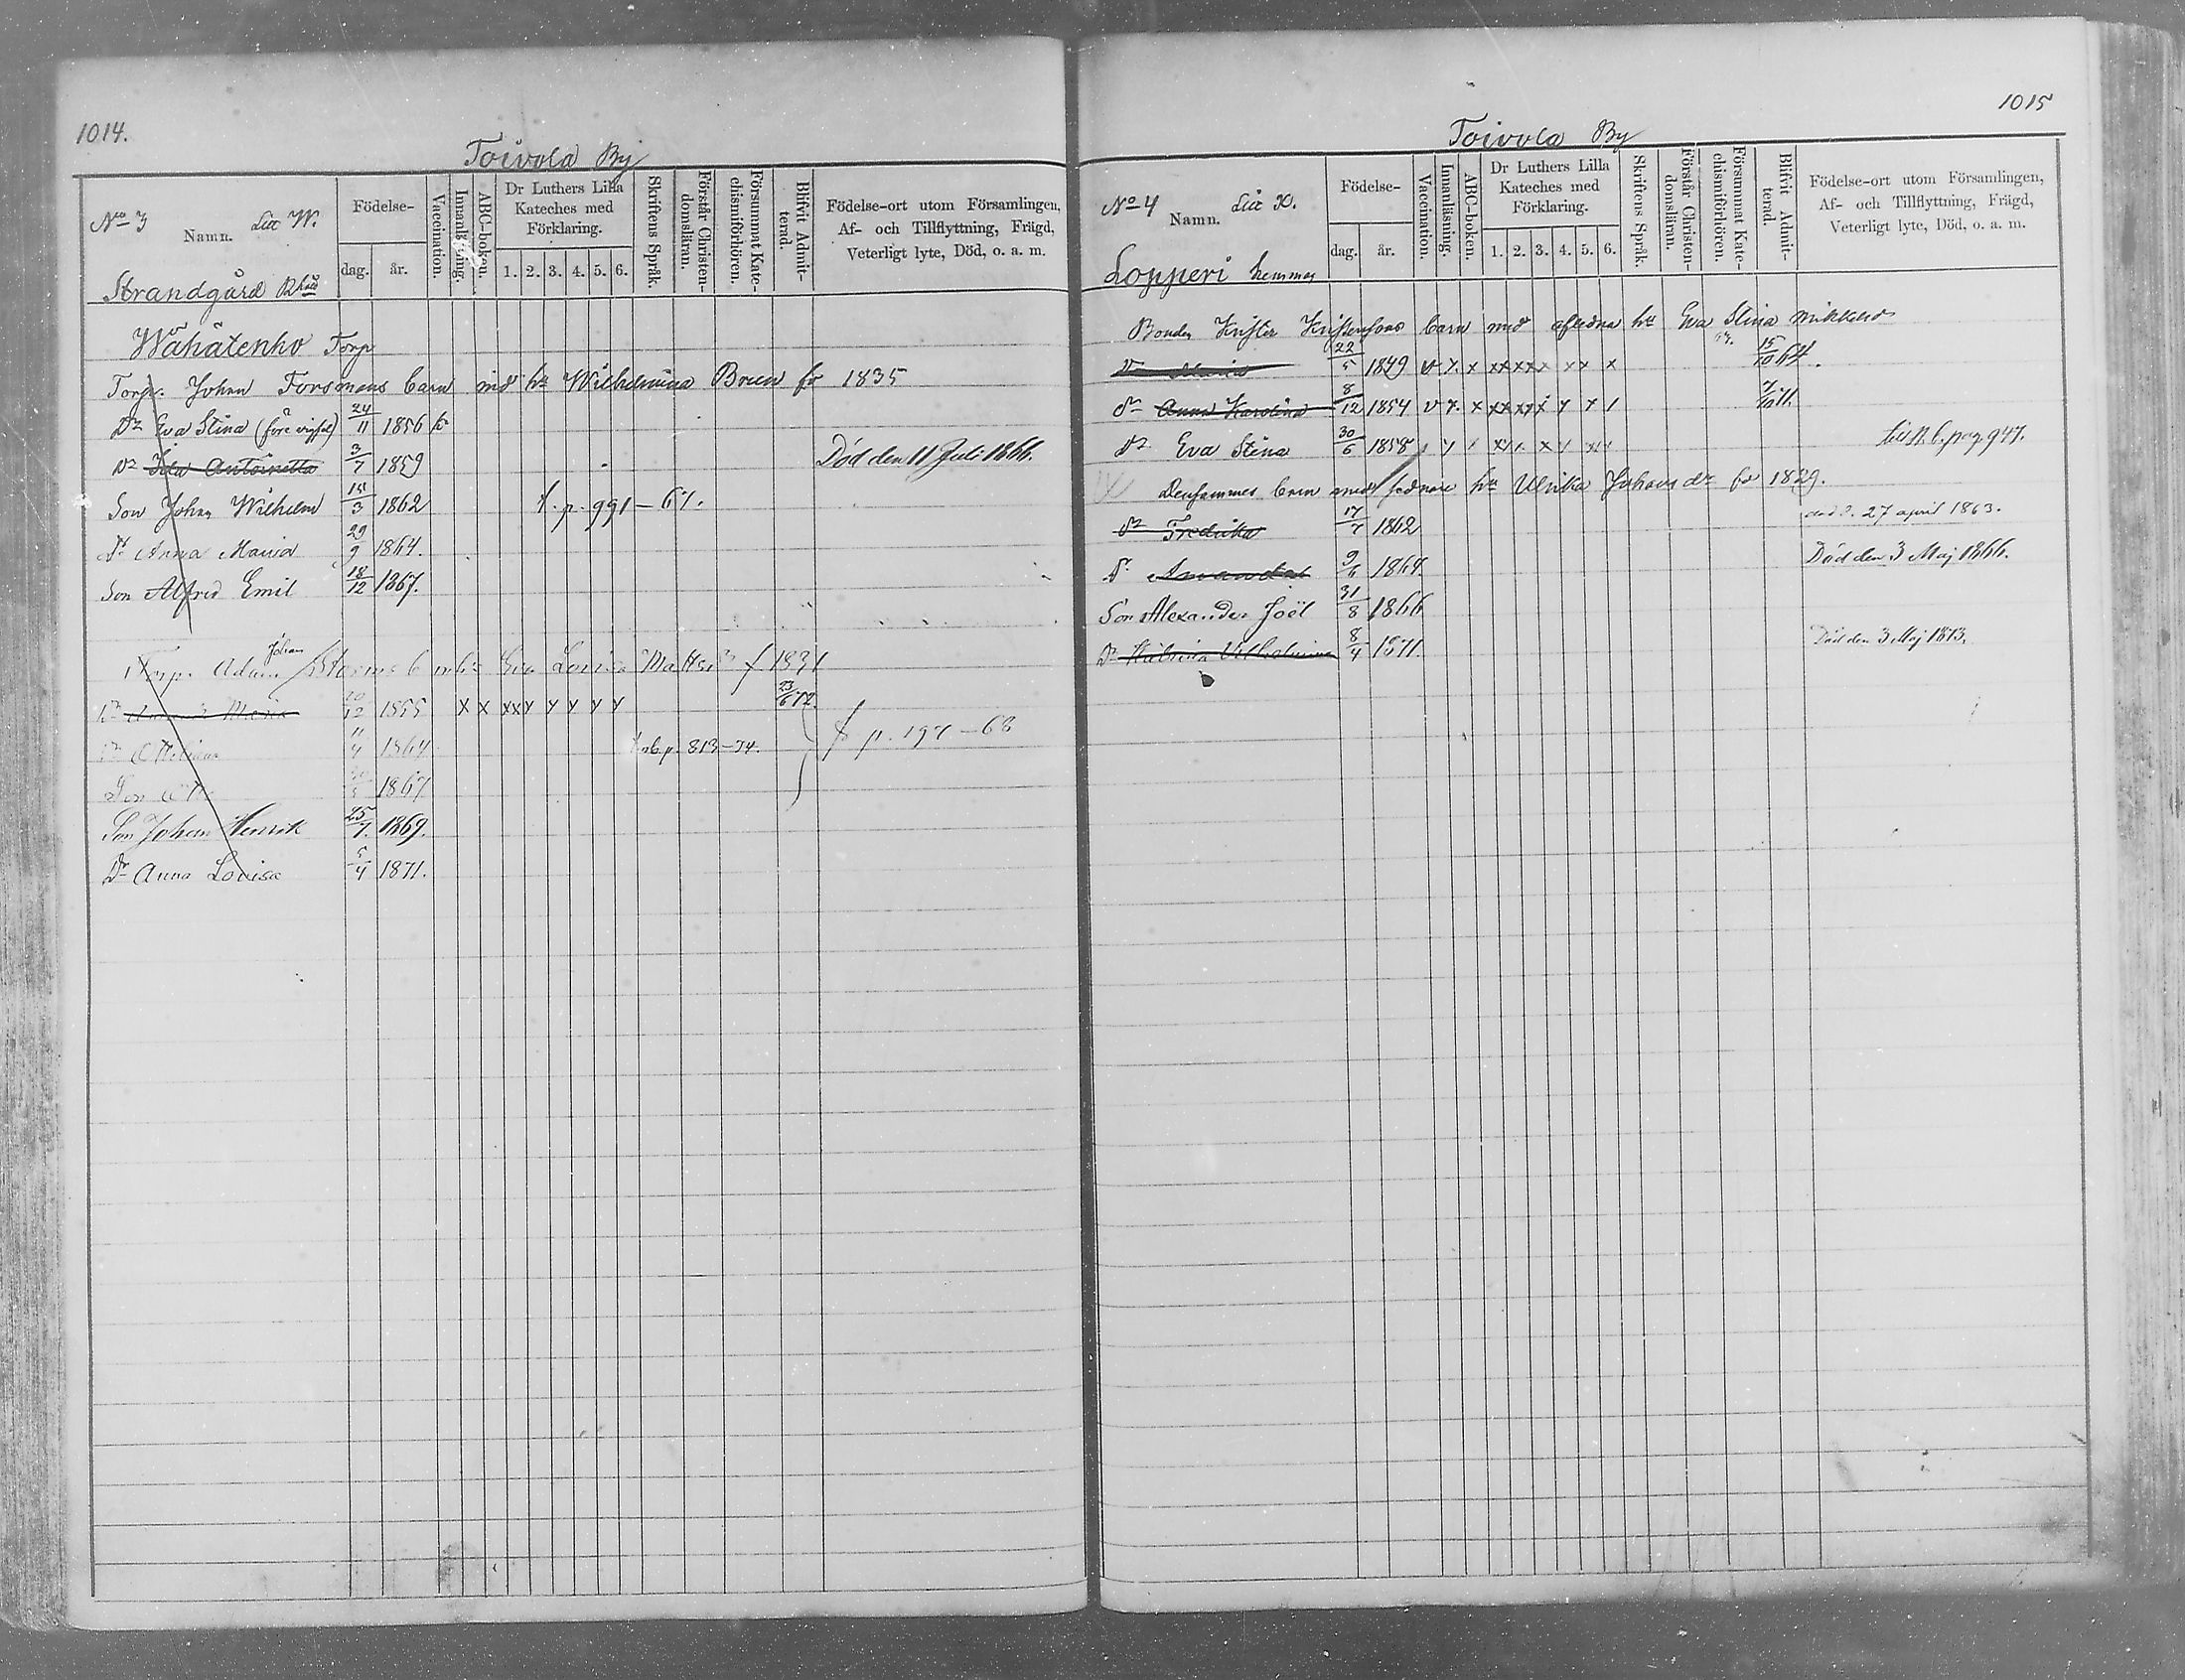 1014.
Toivola By
No 3 Namn. Litt W.
Födelse-
dag. år.
Vaccination.
Innanläsning.
ABC-boken.
Dr Luthers Lilla Kateches med Förklaring.
1. 2. 3. 4. 5. 6.
Skriftens Språk.
Förstår Christen-domsläran.
Försummat Kate-chismiförhören.
Blifvit Admit-terad.
Födelse-ort utom Församlingen,
Af- och Tillflyttning, Frägd,
Veterligt lyte, Död, o. a. m.
Strandgård
Wähätenho Torp
Torp. Johan Forsmans barn med hu Wilhelmina Boren fö 1835
Dr Eva Stina (före vigsel) 24/11 1856
Dr Ida Antoinetta 3/7 1859 Död den 11 Juli 1866.
Son Johan Wilhelm 15/3 1862 f. p. 991 – 67.
Dr Anna Maria 29/9 1864.
Son Alfred Emil 18/12 1867.
Torp. Adam Johan Storms b m hu Eva Lovisa Matts f 1831
Dr Maria 12 1855 x x x x y y y y y 23/6 72.
4 1864 p. 813–74. f p. 197 – 68
Son Otto 1867
Son Johan Henrik 25/7. 1869.
Dr Anna Lovisa 5/4 1871.
1015
Toivola By
No 4 Namn. Litt X.
Födelse-
dag. år.
Vaccination.
Innanläsning.
ABC-boken.
Dr Luthers Lilla Kateches med Förklaring.
1. 2. 3. 4. 5. 6.
Skriftens Språk.
Förstår Christen-domsläran.
Försummat Kate-chismiförhören.
Blifvit Admit-terad.
Födelse-ort utom Församlingen,
Af- och Tillflyttning, Frägd,
Veterligt lyte, Död, o. a. m.
Lopperi hemman
Bonden Krister Kristerssons barn med aflidna hu Eva Stina
Dr Maria 22/5 1849 v x x x x x x x y x 15/10 64.
Dr Anna Karolina 8/12 1854 v x x x x x x y y 1
Dr Eva Stina 30/6 1858 pag. 947.
Densammes barn med sednare hu Ulrika Johans dr fö 1829.
Dr Fredrika 17/7 1862 död d. 27 april 1863.
Dr Amanda 9/6 1864. Död den 3 Maj 1866.
Son Alexander Joël 31/8 1866
Dr Katrina Wilhelmina 8/4 1871. Död den 3 Maj 1873.